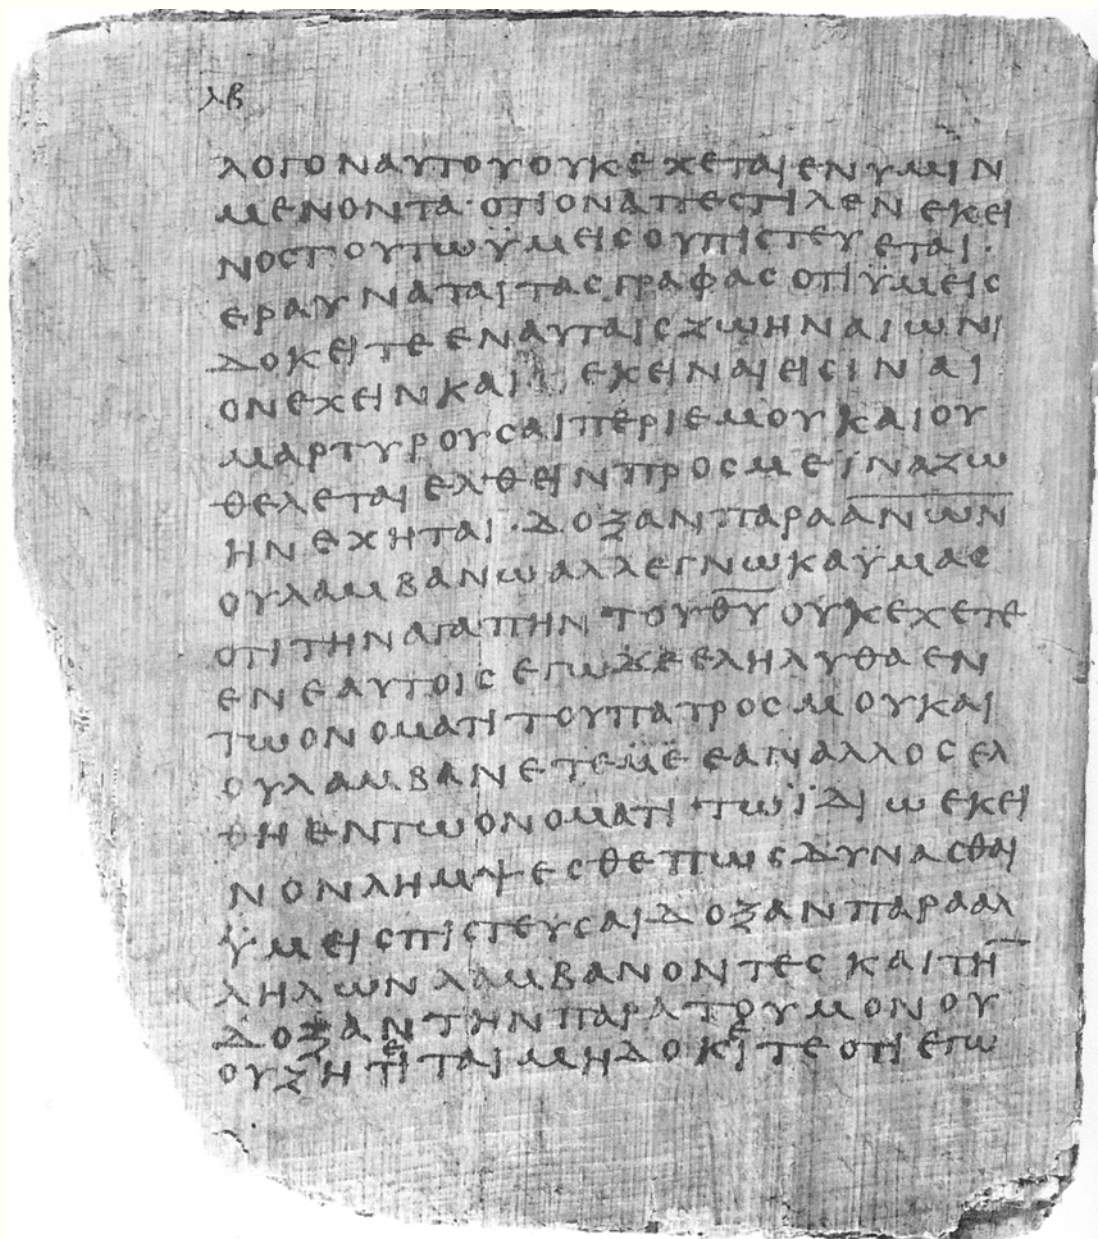 λβ
λογοναυτουουκεχεταιενυμιν
μενοντα·οτιοναπεστιλενεκει
νοστουτωϋμειςουπιστευεται·
εραυναταιταςγραφαςοτιϋμεις
δοκειτεεναυταιςζωηναιωνι
ονεχεινκαιεκειναιεισιναι
μαρτυρουσαιπεριεμουκαιου
θελεταιελθεινπροςμεϊναζω
ηνεχηται·δοξανπαραα̅ν̅ω̅ν̅
ουλαμβανωαλλεγνωκαϋμας
οτιτηναγαπηντουθ̅υ̅ουκεχετε
ενεαυτοιςεγωδεεληλυθαεν
τωονοματιτουπατροςμουκαι
ουλαμβανετεμεεαναλλοςελ
θηεντωονοματιτωϊδιωεκει
νονλημψεσθεπωςδυνασθαι
ϋμειςπιστευσαιδοξανπαρααλ
ληλωνλαμβανοντεςκαιτη̅
δοξαντηνπαρατουμονου
ουζητειταιμηδοκειτεοτιεγω